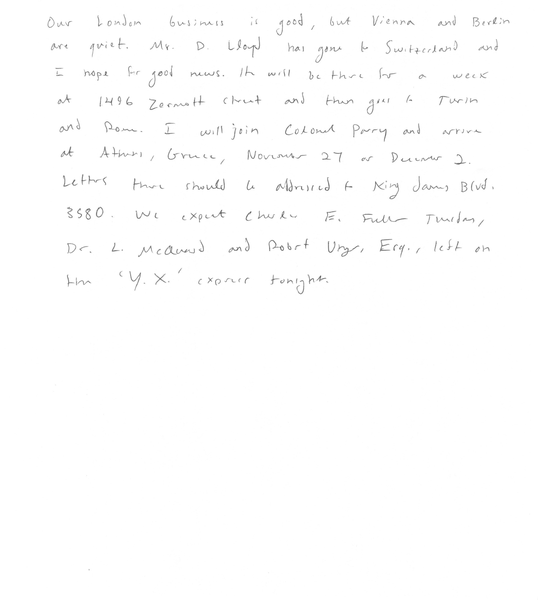 Our London business is good, but Vienna and Berlin
are quiet. Mr. D. Lloyd has gone to Switzerland and
I hope for good news. He will be there for a week
at 1496 Zermatt Street and then goes to Turin
and Rome. I will join Colonel Parry and arrive
at Athens, Greece, November 27 or December 2.
Letters there should be addressed to King James Blvd.
3580. We expect Charles E. Fuller Tuesday,
Dr. L. McQuaid and Robert Unger, Esq., left on
the 'Y. X.' express tonight.